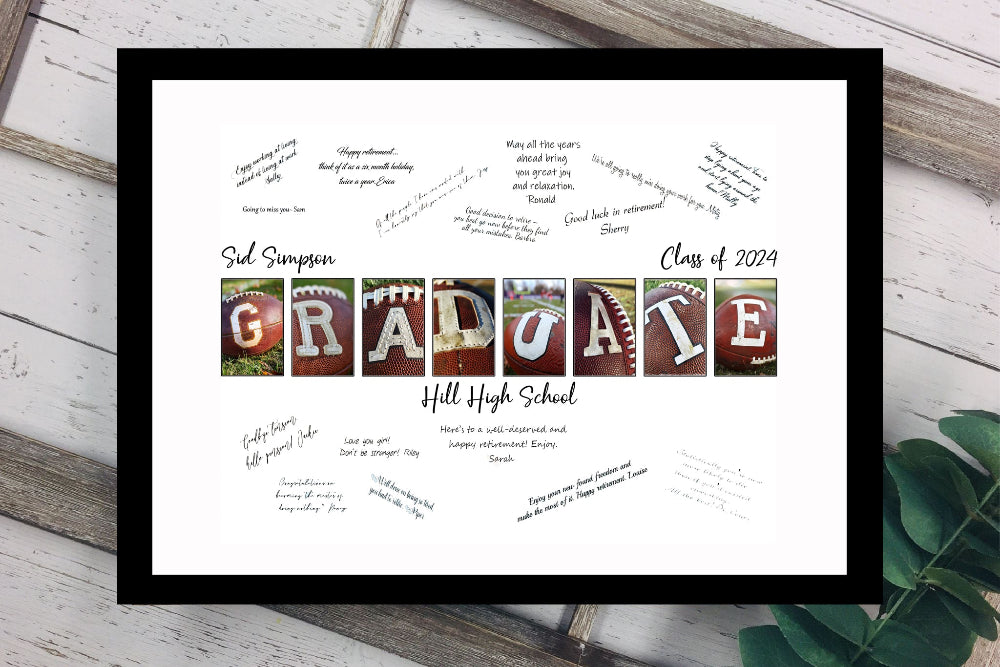 Enjoy working at living,
instead of living at work
Sally
Happy retirement...
think of it as a six month holiday,
twice a year. Erica
May all the years
ahead bring
you great joy
and relaxation,
Ronald
We're all going to really miss
Happy retirement! Time to
stop lying about your age
and start lying around the
house!
Going to miss you- Sam
Of all the people I have ever worked with
Good decision to retire -
you had go now before they find
all your mistakes. Barbra
Good luck in retirement!
Sherry
Sid Simpson
Class of 2024
GRADUATE
Hill High School
Goodbye tension
hello pension! Jackie
Love you girl!
Don't be stranger! Riley
Here's to a well-deserved and
happy retirement! Enjoy.
Sarah
Congratulations on
becoming the master of
doing nothing"
Enjoy your new- found freedom and
make the most of it. Happy retirement. Louise